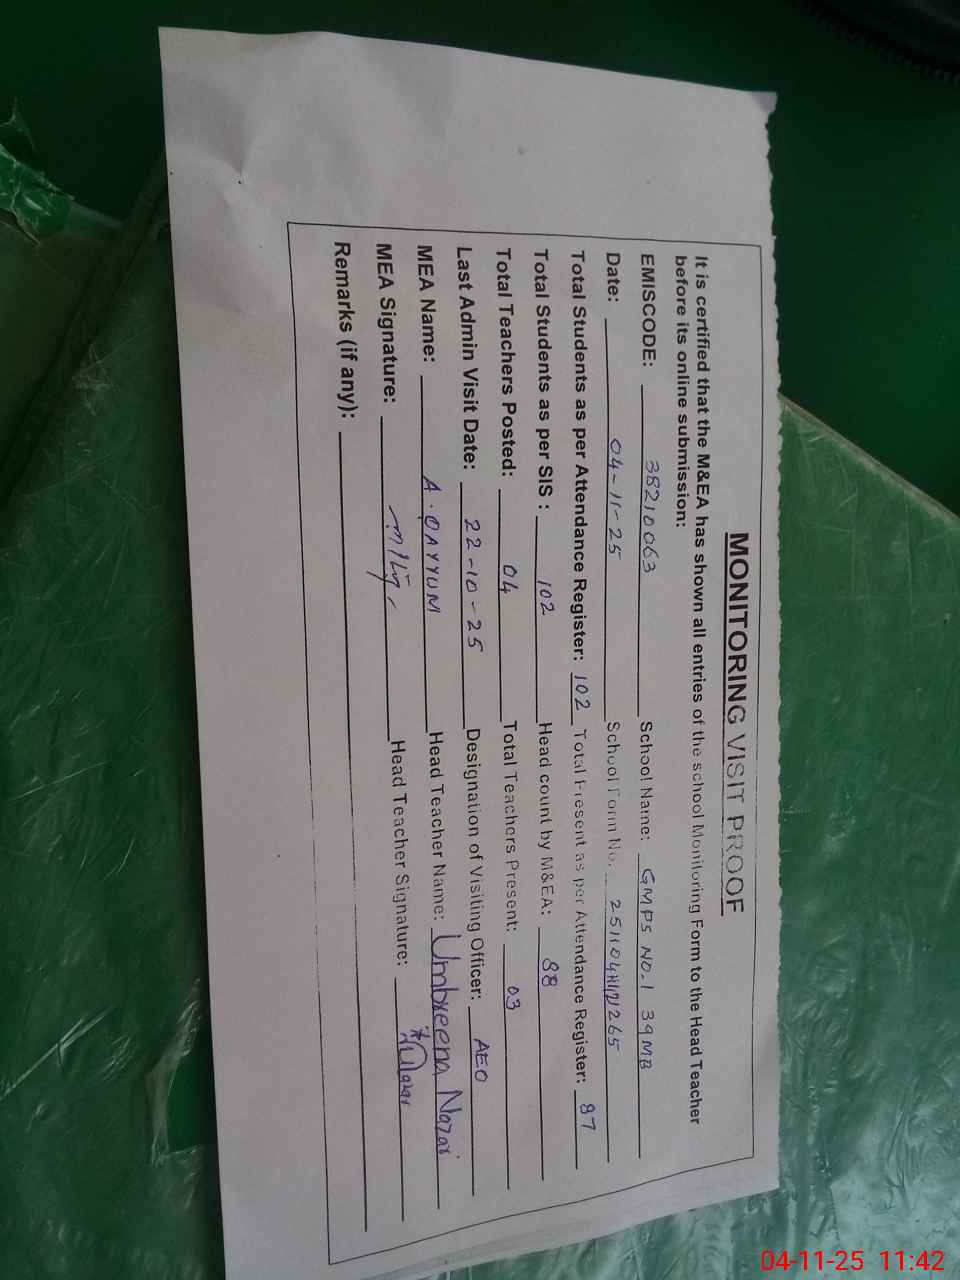 MONITORING VISIT PROOF
It is certified that the M&EA has shown all entries of the school Monitoring Form to the Head Teacher
before its online submission:
EMISCODE: 38210063 School Name: GMPS NO.1 39MB
Date: 04-11-25 School Form No. 251104H121265
Total Students as per Attendance Register: 102 Total Present as per Attendance Register: 87
Total Students as per SIS : 102 Head count by M&EA: 88
Total Teachers Posted: 04 Total Teachers Present: 03
Last Admin Visit Date: 22-10-25 Designation of Visiting Officer: AEO
MEA Name: A.QAYYUM Head Teacher Name: Umbreena Nazar
MEA Signature: Head Teacher Signature:
Remarks (if any):
04-11-25 11:42